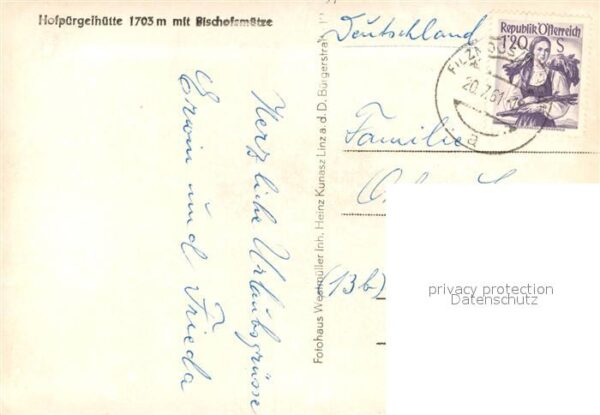 Hofpürgelhütte 1703 m mit Bischofsmütze
Herzliche Urlaubsgrüsse
Erwin und Frieda
Fotohaus Westmüller Inh. Heinz Kunasz Linz a. d. D. Bürgerstraß
Deutschland
Republik Österreich
1'20 S
FILZMOOS
20.7.61
a
Familie
(13b)
privacy protection
Datenschutz